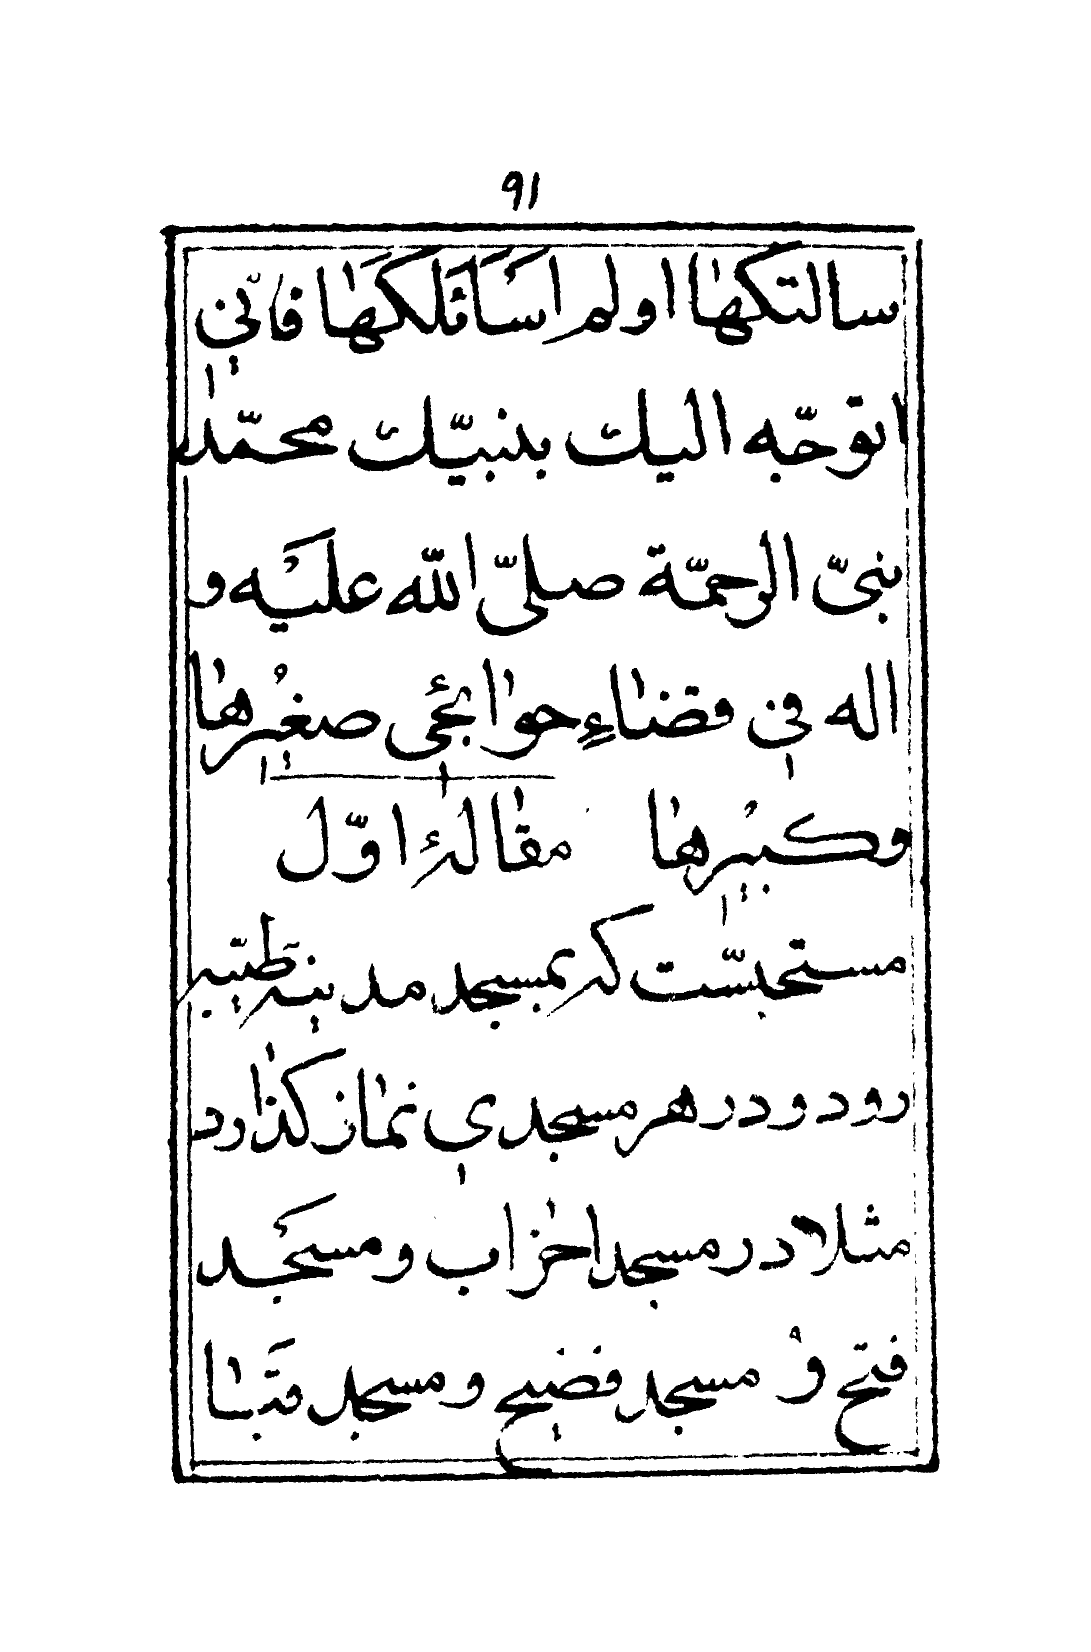 ۹۱
سالتكهٰا او لم اسَاَئلكهَٰا فانّىٖ
اتوجّه اليك بنبيّك محمّدٰ
نبىّ الرحمّة صلّى اللّه عليَه و
اله فىٖ قضٰاءِ حوٰائجىٖ صغيٖرهٰا
وكبيٖرهٰا مقٰالهٔ اوّل
مستحبّست كه بمسجد مدينهٔ طيّبه
رود و در هر مسجدى نمٰاز كذٰارد
مثلا در مسجد احٰزاب و مسجَد
فتح وْ مسجد فضيخ و مسجد قبَٰا